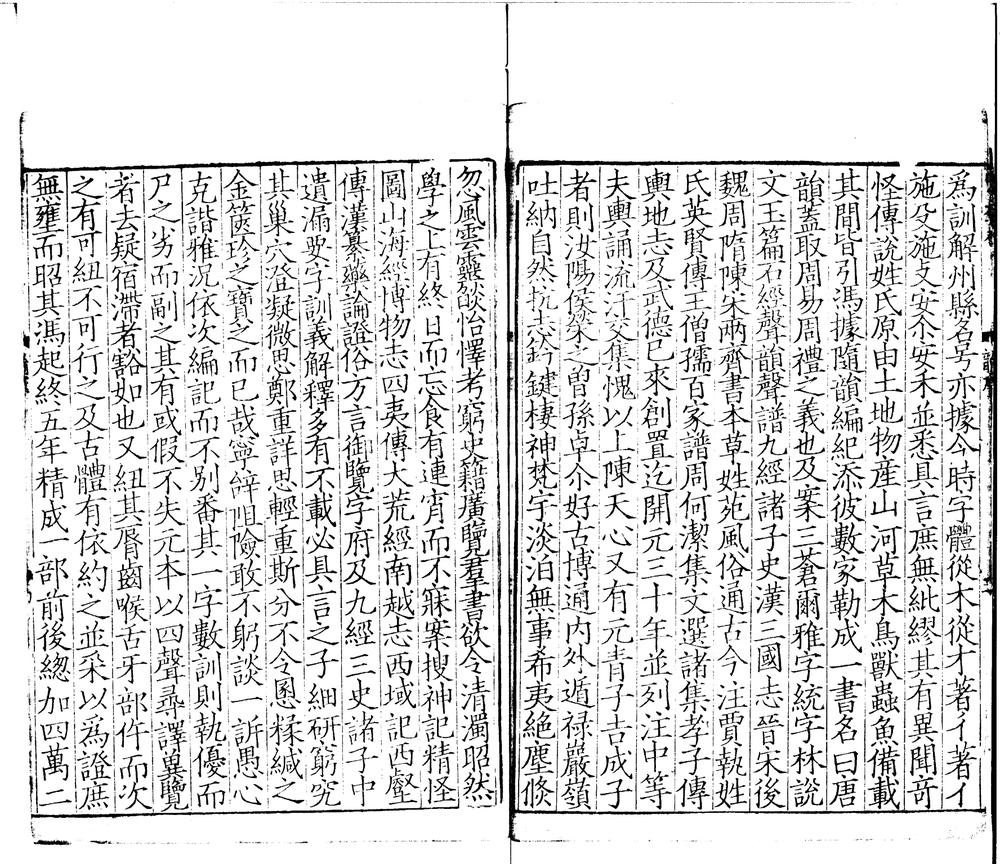 爲訓解州縣名号亦據今時字體從木從才著彳著亻
施殳施攴安尒安禾並悉具言庶無紕繆其有異聞奇
怪傳說姓氏原由土地物産山河草木鳥獸蟲魚備載
其閒皆引馮據隨韻編紀添彼數家勒成一書名曰唐
韻蓋取周易周禮之義也及案三蒼爾雅字統字林說
文玉篇石經聲韻聲譜九經諸子史漢三國志晉宋後
魏周隋陳宋兩齊書本草姓苑風俗通古今注賈執姓
氏英賢傳王僧孺百家譜周何潔集文選諸集孝子傳
輿地志及武德已來創置迄開元三十年並列注中等
夫輿誦流汗交集愧以上陳天心又有元青子吉成子
者則汝陽侯榮之曾孫卓尒好古博通內外遁禄巖嶺
吐納自然抗志鈐鍵棲神梵宇淡泊無事希夷絶塵倐
忽風雲靈談怡懌考窮史籍廣覽羣書欲令清濁昭然
學之上有終日而忘食有連宵而不寐案搜神記精怪
圖山海經博物志四夷傳大荒經南越志西域記西壑
傳漢纂藥論證俗方言御覽字府及九經三史諸子中
遺漏要字訓義解釋多有不載必具言之子細研窮究
其巢穴澄凝微思鄭重詳思輕重斯分不令慁糅緘之
金篋珍之寶之而已哉寧辤阻險敢不躬談一訢愚心
克諧雅况依次編記而不别番其一字數訓則執優而
尸之劣而副之其有或假不失元本以四聲尋譯冀覽
者去疑宿滯者豁如也又紐其脣齒喉舌牙部仵而次
之有可紐不可行之及古體有依約之並采以爲證庶
無壅而昭其馮起終五年精成一部前後緫加四萬二